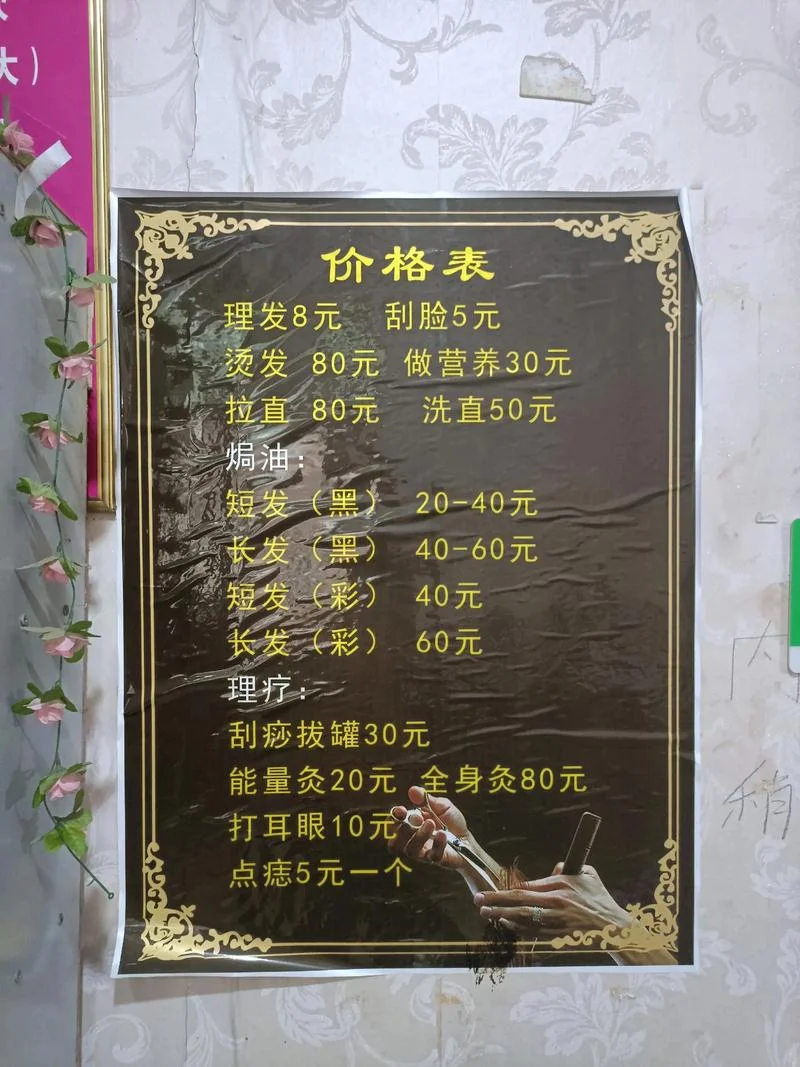 大）
价格表
理发8元 刮脸5元
烫发 80元 做营养30元
拉直 80元 洗直50元
焗油：
短发（黑） 20-40元
长发（黑） 40-60元
短发（彩） 40元
长发（彩） 60元
理疗：
刮痧拔罐30元
能量灸20元 全身灸80元
打耳眼10元
点痣5元一个
内
稍